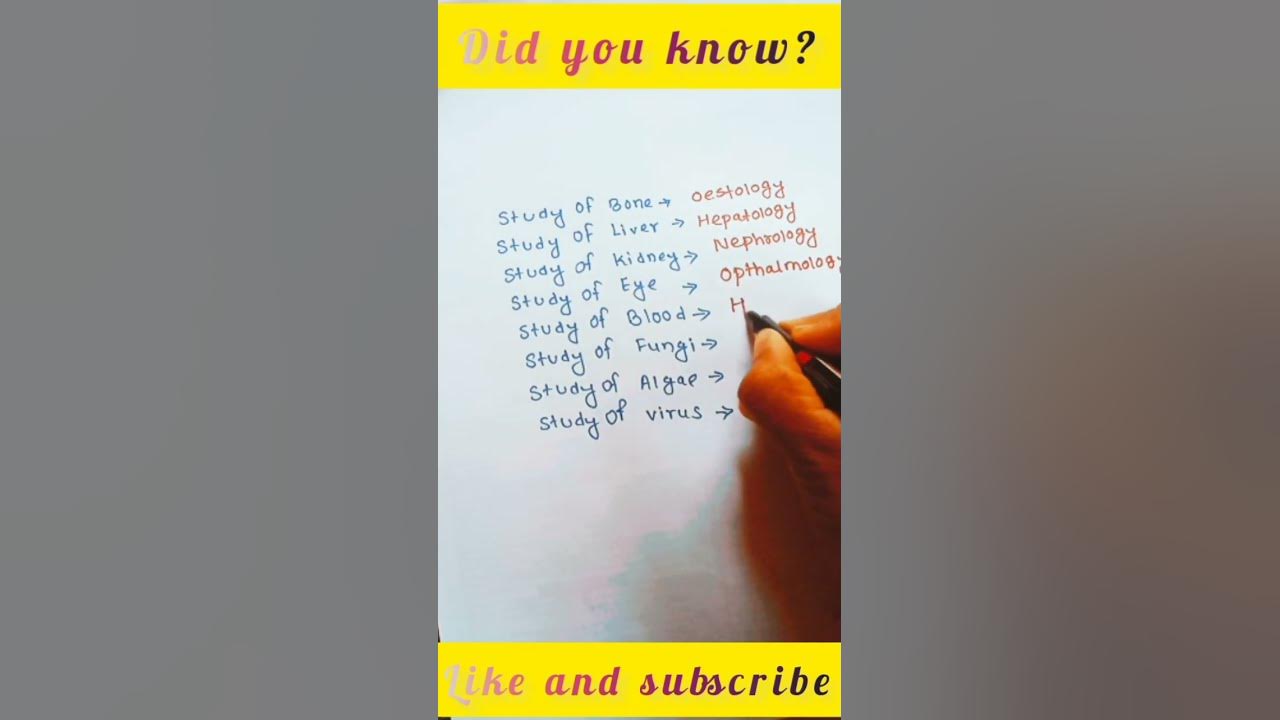 Did you know?
Study of Bone → Oestology
Study of Liver → Hepatology
Study of Kidney → Nephrology
Study of Eye → Opthalmology
Study of Blood → H
Study of Fungi →
Study of Algae →
Study of virus →
Like and subscribe